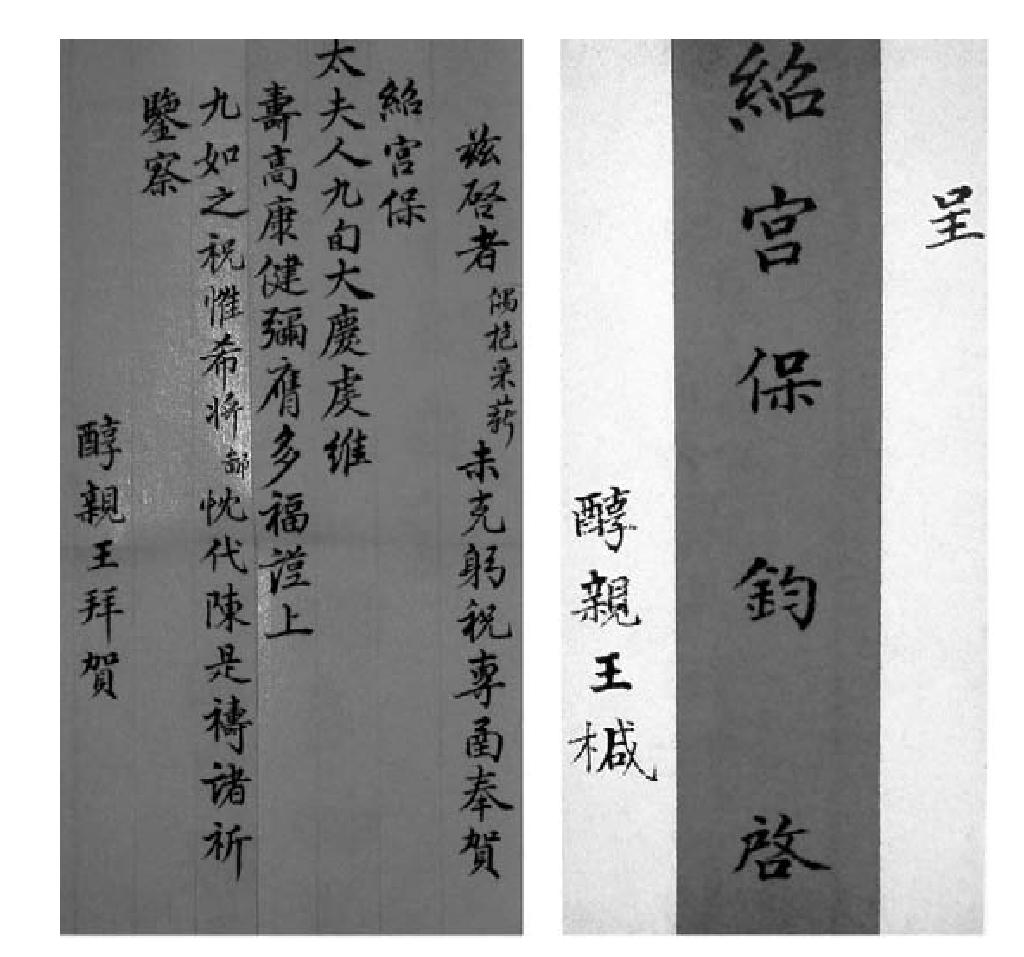 茲啓者偶抱采薪未克躬祝專函奉賀
紹宮保
太夫人九旬大慶虔維
壽高康健彌膺多福謹上
九如之祝惟希將鄙忱代陳是禱諸祈
鑒察
醇親王拜賀
呈
紹宮保鈞啓
醇親王椷